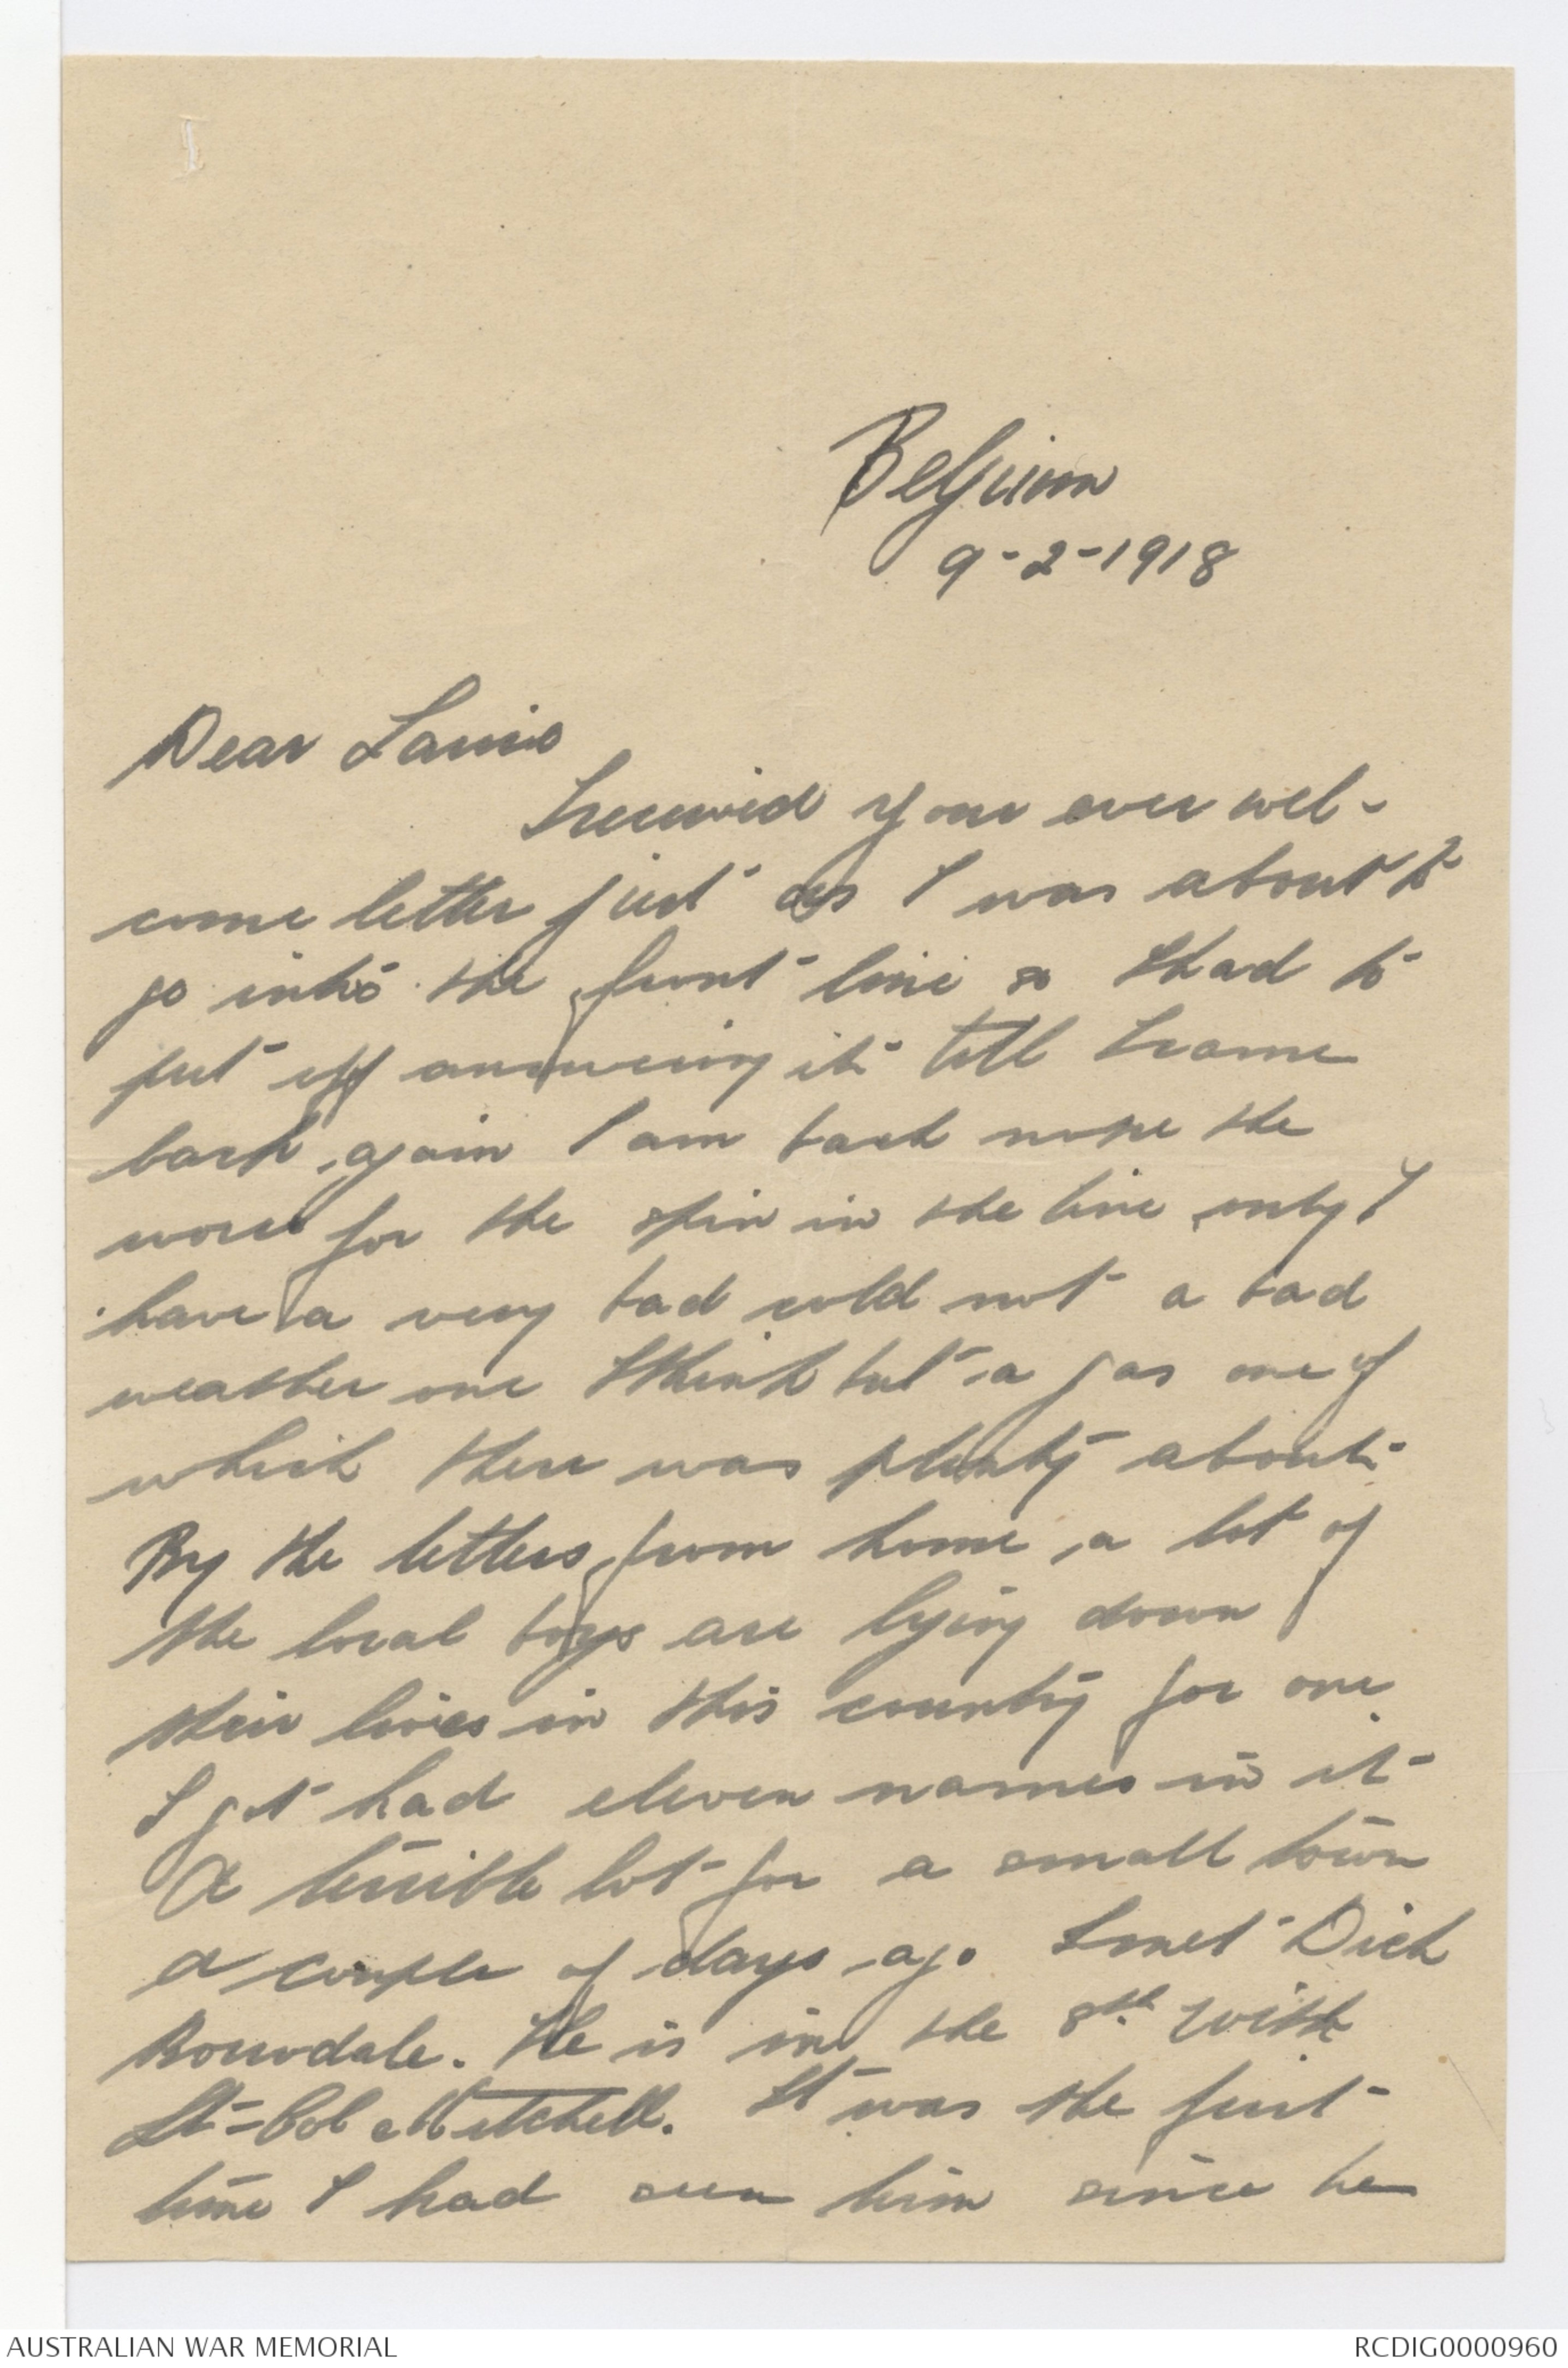 Belgium
9-2-1918
Dear
I received your ever wel-
come letter just as I was about to
go into the front line so I had to
put off answering it till I came
back again I am back none the
worse for the spin in the line only I
have a very bad cold not a bad
weather one I think but a gas one of
which there was plenty about.
By the letters from home a lot of
the local boys are lying down
their lives in this country for one
I got had eleven names in it
A terrible lot for a small town
a couple of days ago I met Dick
He is in the 8th with
Lt-Col Mitchell. It was the first
time I had seen him since he
AUSTRALIAN WAR MEMORIAL
RCDIG0000960